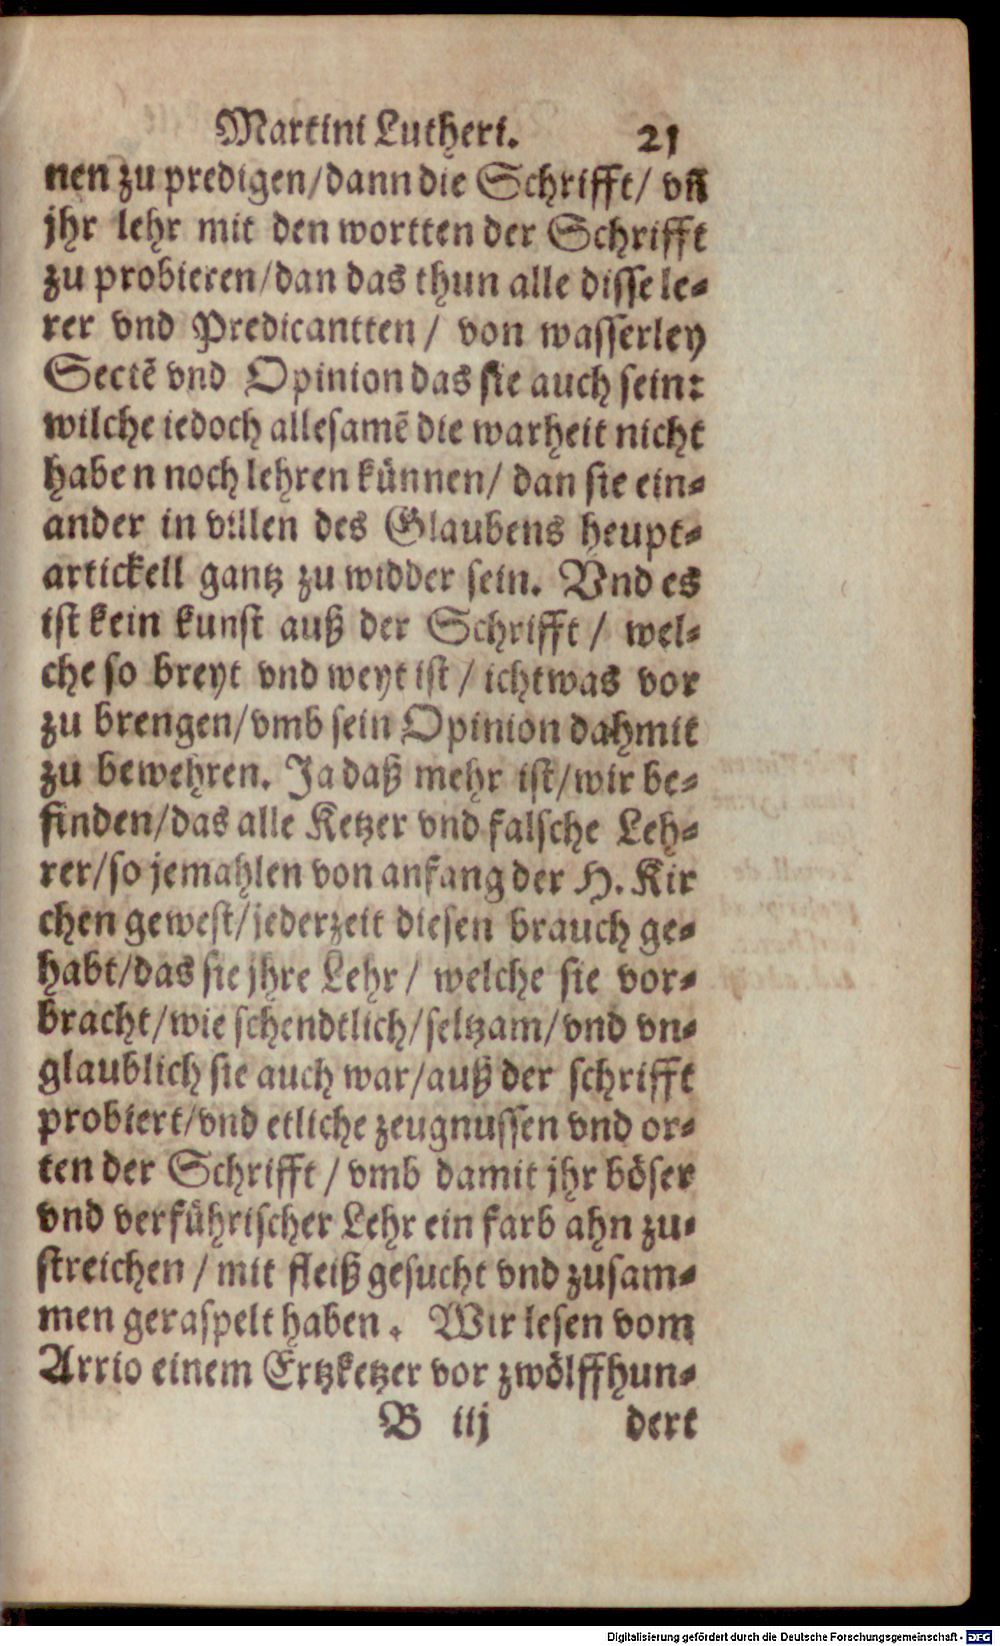 Martini Lutheri. 21
nen zu predigen/dann die Schrifft/ vñ
jhr lehr mit den wortten der Schrifft
zu probieren/dan das thun alle disse le-
rer vnd Predicantten/ von wasserley
Sectē vnd Opinion das sie auch sein:
wilche iedoch allesamē die warheit nicht
haben noch lehren künnen/ dan sie ein-
ander in villen des Glaubens heupt-
artickell gantz zu widder sein. Vnd es
ist kein kunst auß der Schrifft/ wel-
che so breyt vnd weyt ist/ ichtwas vor
zu brengen/vmb sein Opinion dahmit
zu bewehren. Ja daß mehr ist/wir be-
finden/das alle Ketzer vnd falsche Leh-
rer/so jemahlen von anfang der H. Kir
chen gewest/jederzeit diesen brauch ge-
habt/das sie jhre Lehr/ welche sie vor-
bracht/wie schendtlich/seltzam/vnd vn-
glaublich sie auch war/auß der schrifft
probiert/vnd etliche zeugnussen vnd or-
ten der Schrifft/ vmb damit jhr böser
vnd verführischer Lehr ein farb ahn zu-
streichen/ mit fleiß gesucht vnd zusam-
men geraspelt haben. Wir lesen vom
Arrio einem Ertzketzer vor zwölffhun-
B iij dert
Digitalisierung gefördert durch die Deutsche Forschungsgemeinschaft - DFG